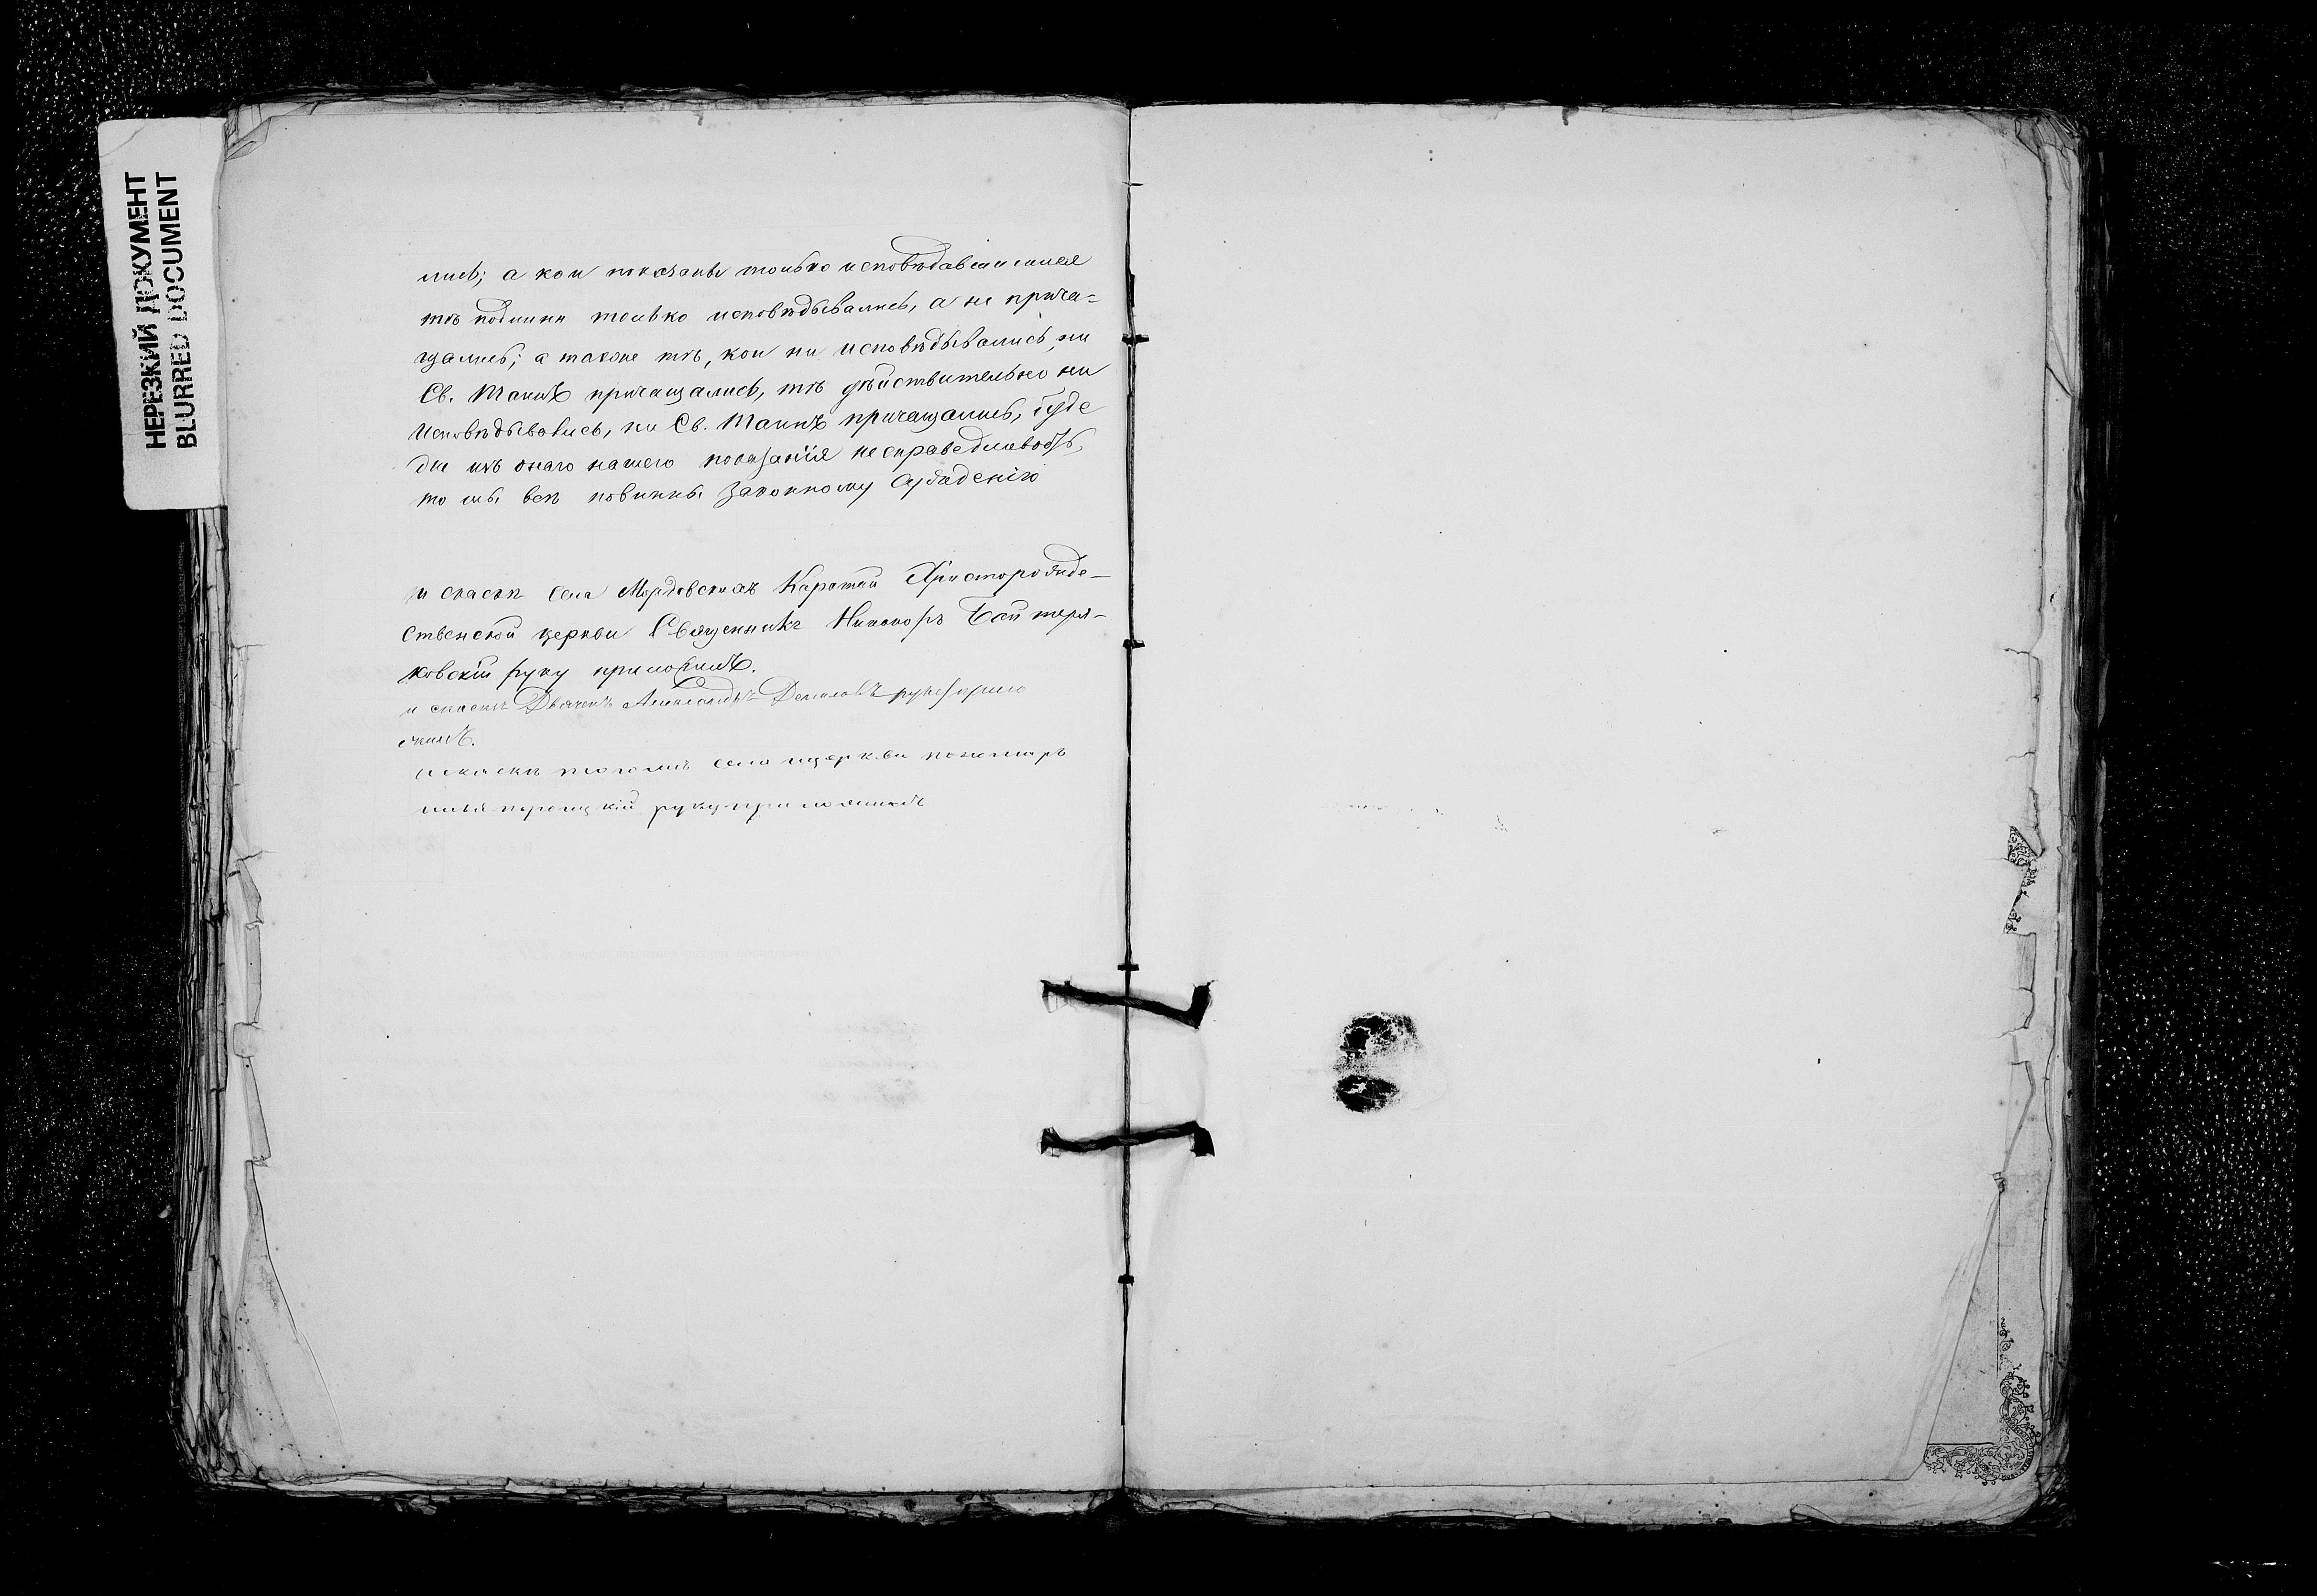 НЕРЕЗКИЙ ДОКУМЕНТ
BLURRED DOCUMENT
лись; а кои показаны только исповѣдавшимися
тѣ подлинн только исповѣдывались, а не прича-
щались; а также тѣ, кои ни исповѣдывались, ни
Св. Таинъ причащались, тѣ дѣйствительно ни
исповѣдывались, ни Св. Таинъ причащались, буде
же изъ онаго нашего показанія несправедливо
то мы всѣ повинны законному сужденію
села Мордовскихъ Каратай Христорожде-
ственской церкви Священникъ Никаноръ Байтеря-
ковскій руку приложилъ.
Дьячекъ Александръ руку прило
жилъ.
тогожъ села и церкви пономарь
руку приложилъ